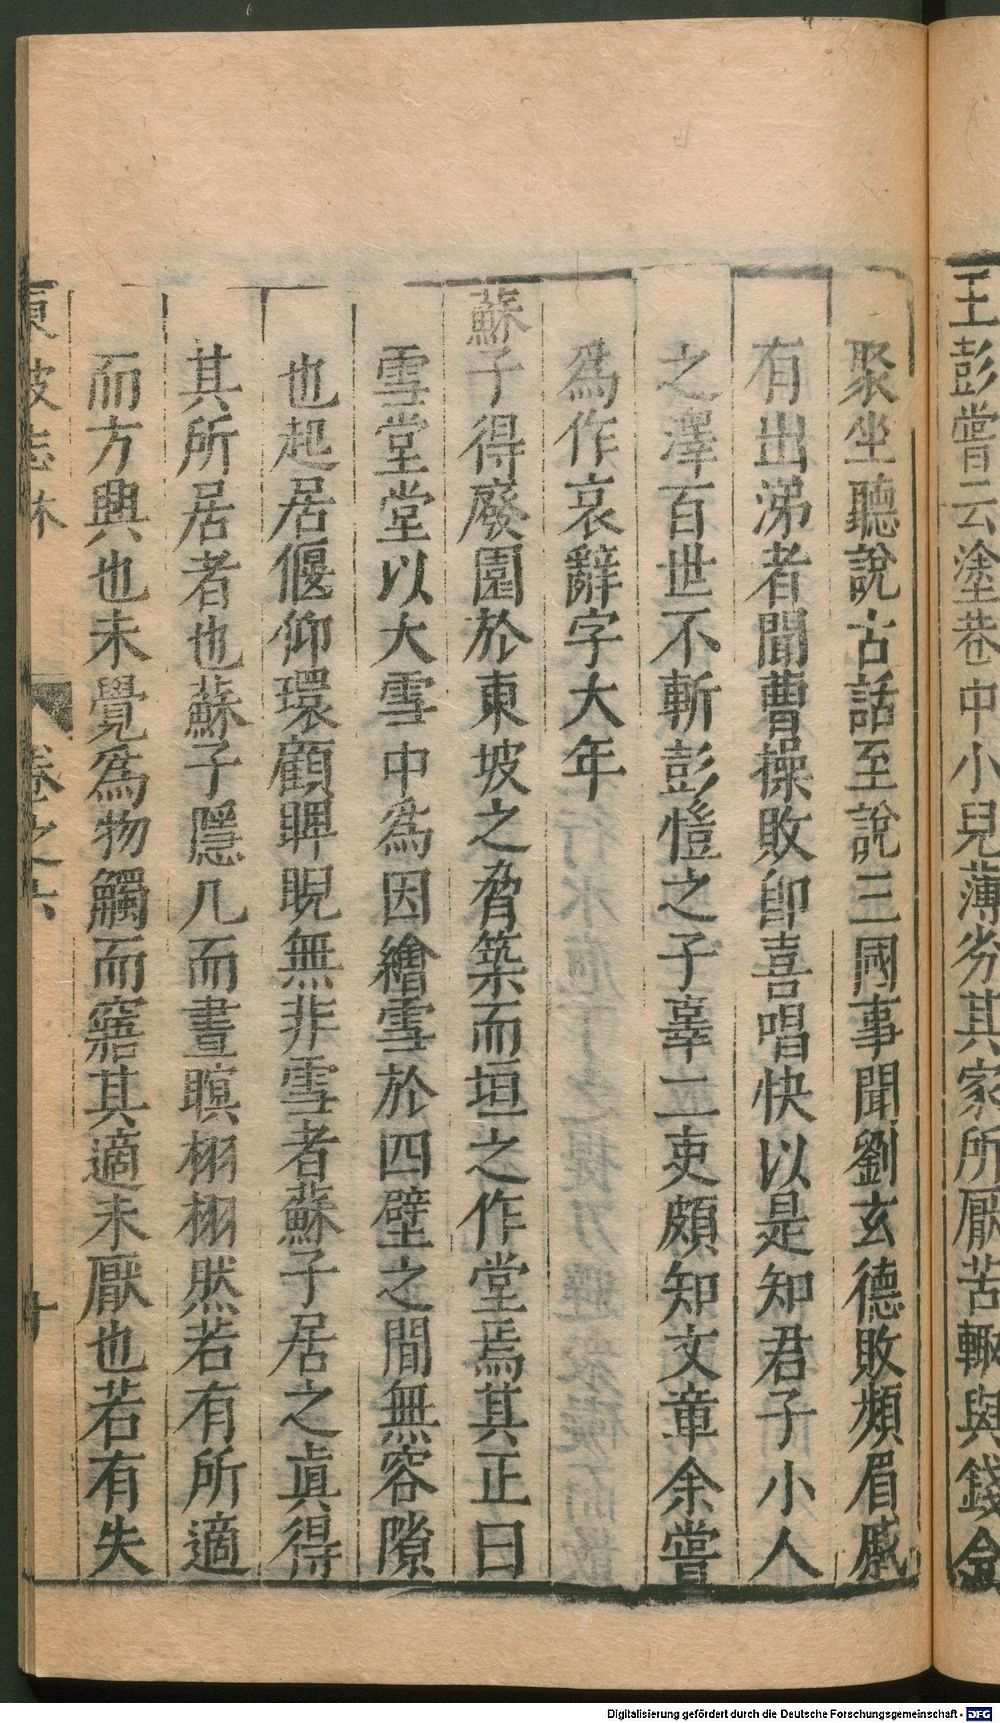 王彭嘗云塗巷中小兒薄劣其家所厭苦輙與錢令
聚坐聽說古話至說三國事聞劉玄德敗頻眉戚
有出涕者聞曹操敗卽喜唱快以是知君子小人
之澤百世不斬彭愷之子辠二吏頗知文章余嘗
爲作哀辭字大年
蘇子得廢園於東坡之脅築而垣之作堂焉其正曰
雪堂堂以大雪中爲因繪雪於四壁之間無容隙
也起居偃仰環顧睥睨無非雪者蘇子居之眞得
其所居者也蘇子隱几而晝瞑栩栩然若有所適
而方興也未覺爲物觸而寤其適未厭也若有失
東坡志林 卷之六
Digitalisierung gefördert durch die Deutsche Forschungsgemeinschaft - DFG